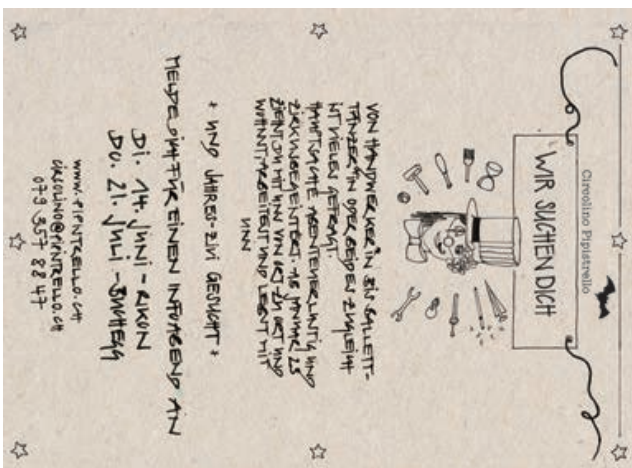 Circolino Pipistrello
WIR SUCHEN DICH
VON HANDWERKER*IN BIS BALLETT-
TÄNZER*IN ODER BEIDES ZUGLEICH
IST VIELES GEFRAGT.
HAUPTSACHE ABENTEUERLUSTIG UND
ZIRKUSBEGEISTERT. AB JANUAR 23
ZIEHST DU MIT UNS VON ORT ZU ORT UND
WOHNST, ARBEITEST UND LEBST MIT
UNS
* UND JAHRES-ZIVI GESUCHT *
MELDE DICH FÜR EINEN INFOABEND AN
DI. 14. JUNI - RIKON
DO. 21. JULI - BUCHEGG
WWW.PIPISTRELLO.CH
CIRCOLINO@PIPISTRELLO.CH
079 357 88 47